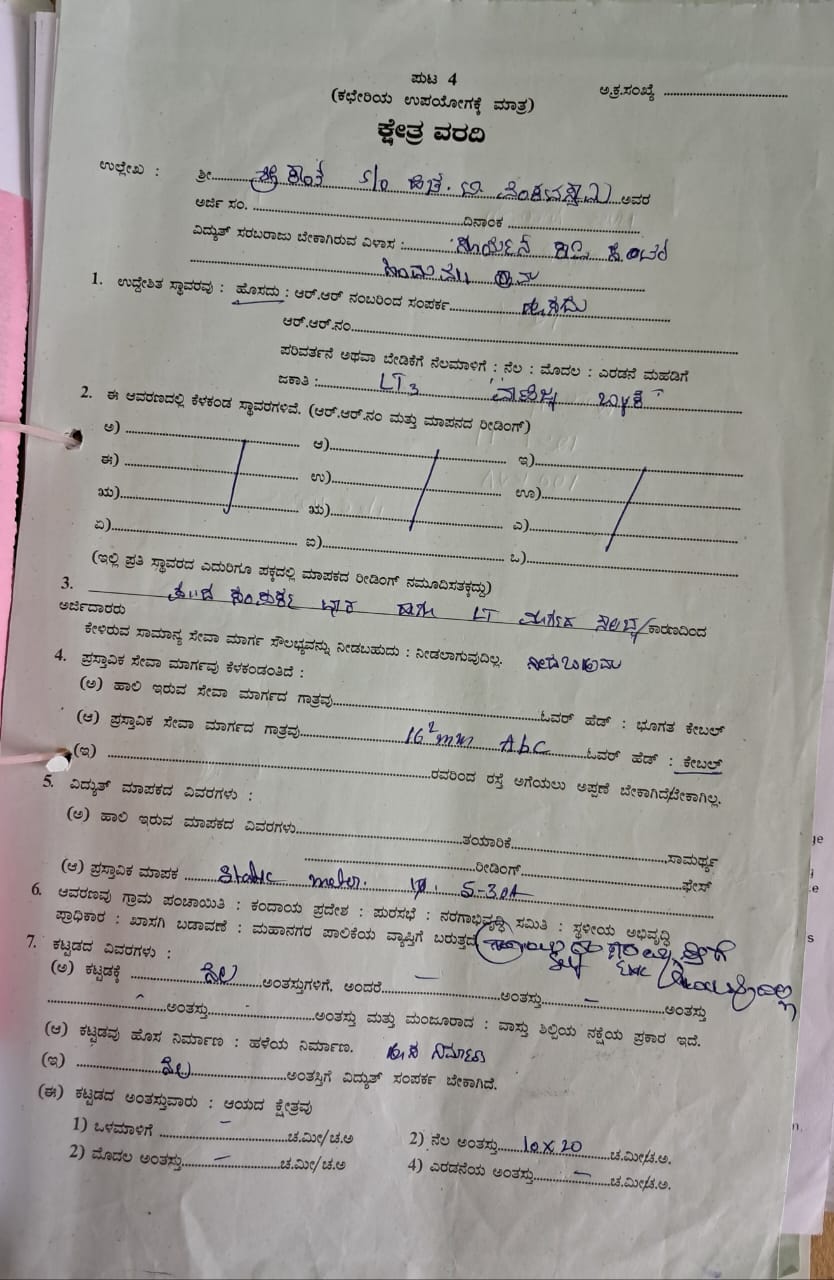 ಪುಟ 4
(ಕಛೇರಿಯ ಉಪಯೋಗಕ್ಕೆ ಮಾತ್ರ)
ಅ.ಕ್ರ.ಸಂಖ್ಯೆ ................................
ಕ್ಷೇತ್ರ ವರದಿ
ಉಲ್ಲೇಖ : ಶ್ರೀ......... ಶ್ರೀಕಾಂತ S/o ಹೆಚ್. ವಿ. ವೆಂಕಟಸ್ವಾಮಿ ಅವರ
ಅರ್ಜಿ ಸಂ. ................................ದಿನಾಂಕ ................................
ವಿದ್ಯುತ್ ಸರಬರಾಜು ಬೇಕಾಗಿರುವ ವಿಳಾಸ :............
1. ಉದ್ದೇಶಿತ ಸ್ಥಾವರವು : ಹೊಸದು : ಆರ್.ಆರ್ ನಂಬರಿಂದ ಸಂಪರ್ಕ............ ಹೊಸದು
ಆರ್.ಆರ್.ನಂ................................
ಪರಿವರ್ತನೆ ಅಥವಾ ಬೇಡಿಕೆಗೆ ನೆಲಮಾಳಿಗೆ : ನೆಲ : ಮೊದಲ : ಎರಡನೆ ಮಹಡಿಗೆ
ಜಕಾತಿ :............ LT3 ವಾಣಿಜ್ಯ ಬಳಕೆ
2. ಈ ಆವರಣದಲ್ಲಿ ಕೆಳಕಂಡ ಸ್ಥಾವರಗಳಿವೆ. (ಆರ್.ಆರ್.ನಂ ಮತ್ತು ಮಾಪನದ ರೀಡಿಂಗ್)
ಅ) ................ ಆ)................ ಇ)................
ಈ) ................ ಉ)................ ಊ)................
ಋ)................ ಋ)................ ಎ)................
ಏ)................ ಐ)................ ಒ)................
(ಇಲ್ಲಿ ಪ್ರತಿ ಸ್ಥಾವರದ ಎದುರಿಗೂ ಪಕ್ಕದಲ್ಲಿ ಮಾಪಕದ ರೀಡಿಂಗ್ ನಮೂದಿಸತಕ್ಕದ್ದು)
3. ಸಂಪರ್ಕ LT ಮಾರ್ಗದ ಕಾರಣದಿಂದ
ಅರ್ಜಿದಾರರು
ಕೇಳಿರುವ ಸಾಮಾನ್ಯ ಸೇವಾ ಮಾರ್ಗ ಸೌಲಭ್ಯವನ್ನು ನೀಡಬಹುದು : ನೀಡಲಾಗುವುದಿಲ್ಲ. ನೀಡಬಹುದು
4. ಪ್ರಸ್ತಾವಿಕ ಸೇವಾ ಮಾರ್ಗವು ಕೆಳಕಂಡಂತಿದೆ :
(ಅ) ಹಾಲಿ ಇರುವ ಸೇವಾ ಮಾರ್ಗದ ಗಾತ್ರವು................ಓವರ್ ಹೆಡ್ : ಭೂಗತ ಕೇಬಲ್
(ಆ) ಪ್ರಸ್ತಾವಿಕ ಸೇವಾ ಮಾರ್ಗದ ಗಾತ್ರವು............ 16²mm AbC ......ಓವರ್ ಹೆಡ್ : ಕೇಬಲ್
(ಇ) ................................ರವರಿಂದ ರಸ್ತೆ ಅಗೆಯಲು ಅಪ್ಪಣೆ ಬೇಕಾಗಿದೆ/ಬೇಕಾಗಿಲ್ಲ.
5. ವಿದ್ಯುತ್ ಮಾಪಕದ ವಿವರಗಳು :
(ಅ) ಹಾಲಿ ಇರುವ ಮಾಪಕದ ವಿವರಗಳು................ತಯಾರಿಕೆ................ಸಾಮರ್ಥ್ಯ
................ರೀಡಿಂಗ್................ಫೇಸ್
(ಆ) ಪ್ರಸ್ತಾವಿಕ ಮಾಪಕ ...... Static meter. 1φ. 5-30A
6. ಆವರಣವು ಗ್ರಾಮ ಪಂಚಾಯಿತಿ : ಕಂದಾಯ ಪ್ರದೇಶ : ಪುರಸಭೆ : ನರಗಾಭಿವೃದ್ಧಿ ಸಮಿತಿ : ಸ್ಥಳೀಯ ಅಭಿವೃದ್ಧಿ
ಪ್ರಾಧಿಕಾರ : ಖಾಸಗಿ ಬಡಾವಣೆ : ಮಹಾನಗರ ಪಾಲಿಕೆಯ ವ್ಯಾಪ್ತಿಗೆ ಬರುತ್ತದೆ
7. ಕಟ್ಟಡದ ವಿವರಗಳು :
(ಅ) ಕಟ್ಟಡಕ್ಕೆ ............ ನೆಲ ......ಅಂತಸ್ತುಗಳಿಗೆ, ಅಂದರೆ...... – ......ಅಂತಸ್ತು...... – ......ಅಂತಸ್ತು
................ಅಂತಸ್ತು................ಅಂತಸ್ತು ಮತ್ತು ಮಂಜೂರಾದ : ವಾಸ್ತು ಶಿಲ್ಪಿಯ ನಕ್ಷೆಯ ಪ್ರಕಾರ ಇದೆ.
(ಆ) ಕಟ್ಟಡವು ಹೊಸ ನಿರ್ಮಾಣ : ಹಳೆಯ ನಿರ್ಮಾಣ. ಹೊಸ ನಿರ್ಮಾಣ
(ಇ) ............ ನೆಲ ............ಅಂತಸ್ತಿಗೆ ವಿದ್ಯುತ್ ಸಂಪರ್ಕ ಬೇಕಾಗಿದೆ.
(ಈ) ಕಟ್ಟಡದ ಅಂತಸ್ತುವಾರು : ಆಯದ ಕ್ಷೇತ್ರವು
1) ಒಳಮಾಳಿಗೆ ...... – ......ಚ.ಮೀ/ಚ.ಅ 2) ನೆಲ ಅಂತಸ್ತು...... 10 x 20 ......ಚ.ಮೀ/ಚ.ಅ.
2) ಮೊದಲ ಅಂತಸ್ತು...... – ......ಚ.ಮೀ/ಚ.ಅ 4) ಎರಡನೆಯ ಅಂತಸ್ತು...... – ......ಚ.ಮೀ/ಚ.ಅ.